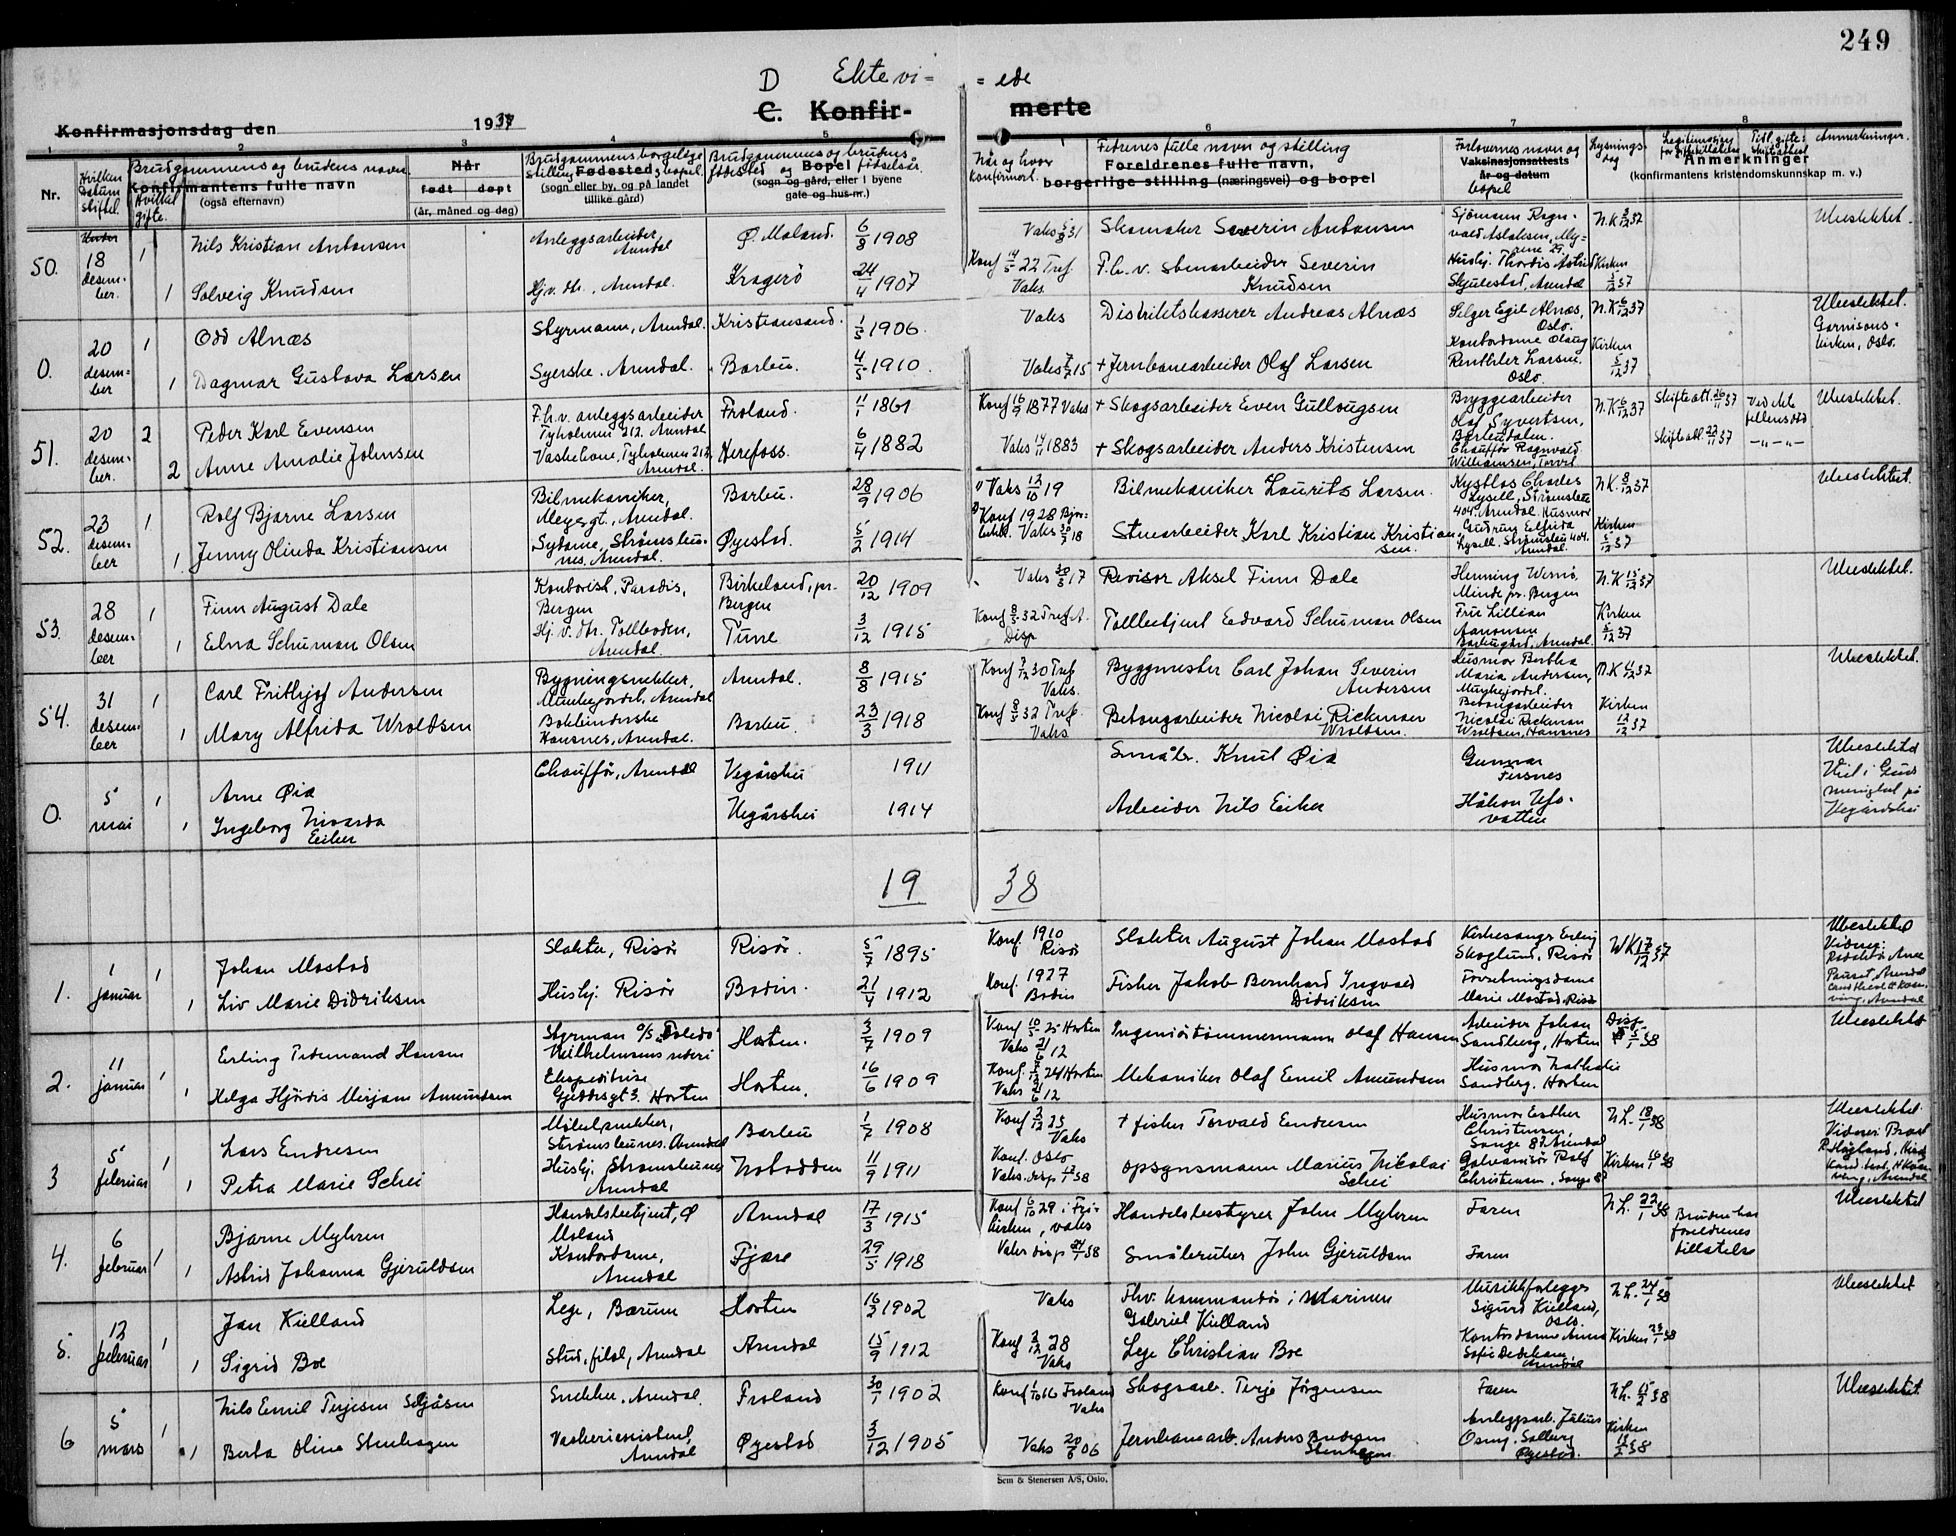 249
D Ektevi= =ede
C. Konfir- merte
Konfirmasjonsdag den 1937
1 2 3 4 5 6 7 8
Nr.
Hvilken datum skiftet.
Brudgommens og brudens navn
Konfirmantens fulle navn
(også efternavn)
Hvilket gifte.
Når
født døpt
(år, måned og dag)
Brudgommens borgelige stilling og bopel.
Fødested
(sogn eller by, og på landet tillike gård)
Brudgommens og brudens fødested og fødselsår.
Bopel
(sogn og gård, eller i byene gate og hus-nr.)
Når og hvor konfirmert.
Fedrenes fulle navn og stilling
Foreldrenes fulle navn,
borgerlige stilling (næringsvei) og bopel
Forlovernes navn og bopel
Vaksinasjonsattests år og datum
Lysnings dag
Tidl. gifte: Skifteattest
Anmerkninger.
Anmerkninger
(konfirmantens kristendomskunnskap m. v.)
50. 18 desember.
1 Nils Kristian Antonsen Anleggsarbeider, Arendal Ø. Moland. 6/8 1908 Vaks 3/8 31 Skomaker Severin Antonsen Sjömann Ragnvald Aslaksen, Myrene 29. N.K 3/12 37 Ubeslektet.
1 Solveig Knudsen Hj. v. dr., Arendal. Kragerö 24/4 1907 Konf 14/5 22 Tref. Vaks. F.h.v. stenarbeider Severin Knudsen Hushj. Thordis Astrid Skjulestad, Arendal Kirken 5/12 37
0. 20 desember
1 Odd Alnæs Styrmann, Arendal. Kristiansand. 1/5 1906. Vaks Distriktskasserer Andreas Alnæs Selger Egil Alnæs, Oslo. N.K 6/12 37 Ubeslektet. Garnisonskirken, Oslo.
1 Dagmar Gustava Larsen Syerske. Arendal. Barbu. 4/5 1910. Vaks 7/7 15 + Jernbanearbeider Olaf Larsen Kontordame Olaug Larsen. Oslo. Kirken 5/12 37
51. 20 desember.
2 Peder Karl Evensen F.h.v. anleggsarbeider Tyholmen 212. Arendal Froland. 11/1 1861 Konf 16/9 1877 Vaks + Skogsarbeider Even Gullougsen Bryggearbeider Olaf Syvertsen, Barbudalen. N.K 6/12 37 Skifteatt. 26/11 37 Ubeslektet.
2 Anne Amalie Johnsen Vaskekone, Tyholmen 212, Arendal. Herefoss. 6/4 1882 Vaks 14/11 1883 + Skogsarbeider Anders Kristensen Chauffør Ragnvald Williamsen, Torvet Skifteatt. 22/11 37 -"- -"-
52. 23 desember
1 Rolf Bjarne Larsen Bilmekaniker, Meyegt., Arendal. Barbu. 28/9 1906 Vaks 12/10 19 Bilmekaniker Laurits Larsen. Charles Lysell, Strømsbu 404. Arendal. N.K. 8/12 37 Ubeslektet.
1. Jenny Olinda Kristiansen Sydame, Strømsbunes. Arendal. Øyestad. 5/2 1914 Konf 1928 Vaks 30/7 18 Stuearbeider Karl Kristian Kristiansen. Husmor Gudrun Elfrida Lysell. Strømsbu 404. Arendal. Kirken 5/12 37
53. 28 desember
1 Finn August Dale Kontorist, Paradis, Bergen Birkeland, pr. Bergen 20/12 1909 Vaks 30/5 17 Revisor Aksel Finn Dale Henning Wernö, Minde pr. Bergen N.K 15/12 37 Ubeslektet.
1 Elna Schuman Olsen Hj. v. dr. Tollboden, Arendal. Tune 3/12 1915 Konf 8/5 32 Tref. A. Disp Tollbetjent Edvard Schuman Olsen Fru Lillian Aanonsen Barbugård, Arendal. Kirken 5/12 37
54. 31 desember
1 Carl Frithjof Andersen Bygningsnekker, Munkejordet, Arendal Arendal. 8/8 1915 Konf 7/12 30 Tref Vaks. Byggmester Carl Johan Severin Andersen Husmor Bertha Maria Andersen, Munkejordet. N.K 11/12 37 Ubeslektet.
1 Mary Alfrida Wroldsen Bokbinderske Hansnes, Arendal. Barbu. 23/3 1918 Konf 8/5 32 Tref. Vaks Betongarbeider Nicolai Rickman Wroldsen. Betongarbeider Nicolai Rickman Wroldsen, Hansnes Kirken 12/12 37
0. 5 mai
1 Arne Øia Chauffør, Arendal Vegårshei 1911 Småbr. Knut Øia Gunnar Fursnes Ubeslektet Viet i Guds menighet på Vegårdshei
1 Ingeborg Nivarda Eiker Vegårshei 1914 Arbeider Nils Eiker Håkon Ufsvatten
19 38
1. 1 januar
1 Johan Mostad Slakter, Risør Risør. 5/7 1895 Konf. 1910 Risør Slakter August Johan Mostad Kirkesanger Erling Skoglund, Risør N.K 17/12 37 Ubeslektet
1 Liv Marie Didriksen Hushj. Risør Bodin. 21/4 1912 Konf. 1927 Bodin Fisker Jakob Bernhard Ingvald Didriksen Forretningsdame Marie Mostad, Risør
2. 11 januar
1 Erling Ferdinand Hansen Styrman o/s "Toledo" Wilhelmsens rederi Horten. 3/7 1909 Konf 10/5 25 Horten Vaks 21/6 12 Ingeniørtømmermann Olaf Hansen Arbeider Johan Sandberg, Horten Disp 5/1 38 Ubeslektet
1 Helga Hjördis Mirjam Amundsen Ekspeditrise Gjeddegt 3. Horten Horten. 16/6 1909 Konf. 24 Horten Vaks 21/6 12 Mekaniker Olaf Emil Amundsen Husmor Nathalie Sandberg. Horten
3 5 februar
1 Lars Endresen Möbelsnekker, Strømsbunes. Arendal Barbu 1/7 1908 Konf 2/12 25 Vaks + fisker Torvald Endresen Husmor Esther Christensen, Songe 87. Arendal N.L. 18/1 38 Ubeslektet.
1 Petra Marie Schei Hushj. Strømsbunes Arendal Notodden 11/9 1911 Konf. Oslo Vaks. disp 17/1 38 opsynsmann Marius Nikolai Schei Galvanisør Rolf Christensen, Songe 87 Kirken 16/1 38
4. 6 februar
1 Bjarne Myhren Handelsbetjent, Ø Moland Arendal 17/3 1915 Konf 6/10 29 i Fri-kirken, vaks Handelsbestyrer John Myhren Faren N.L. 22/1 38 Bruden har foreldrenes tillatelse Ubeslektet
1 Astrid Johanna Gjeruldsen Kontordame, Arendal Fjære 29/5 1918 Vaks disp 24/1 38 Småbruker John Gjeruldsen Faren
5. 12 februar
1 Jan Kielland Lege, Bærum Horten 16/2 1902 Vaks Fhv. kommandør i Marinen Gabriel Kielland Musikkforlegger Sigurd Kielland, Oslo. N.L. 24/1 38 Ubeslektet
1 Sigrid Boe Stud. filol, Arendal Arendal 15/9 1912 Konf 2/12 28 Vaks Lege Christian Boe Kontordame Anna Sofie Dedekam, Arendal Kirken 23/1 38
6 5 mars
1 Nils Emil Terjesen Seljåsen Snekker. Arendal. Froland 30/1 1902 Konf 1/10 16 Froland Vaks Skogsarb. Terje Jørgensen Faren N.L. 15/2 38 Ubeslektet
1 Berta Oline Stenhagen Vaskeriassistent, Arendal Øyestad 3/12 1905 Vaks 20/6 06 Jernbanearb. Anders Andersen Stenhagen Anleggsarb. Julius Osmy. Solberg Øyestad. Kirken 13/2 38
Sem & Stenersen A/S, Oslo.